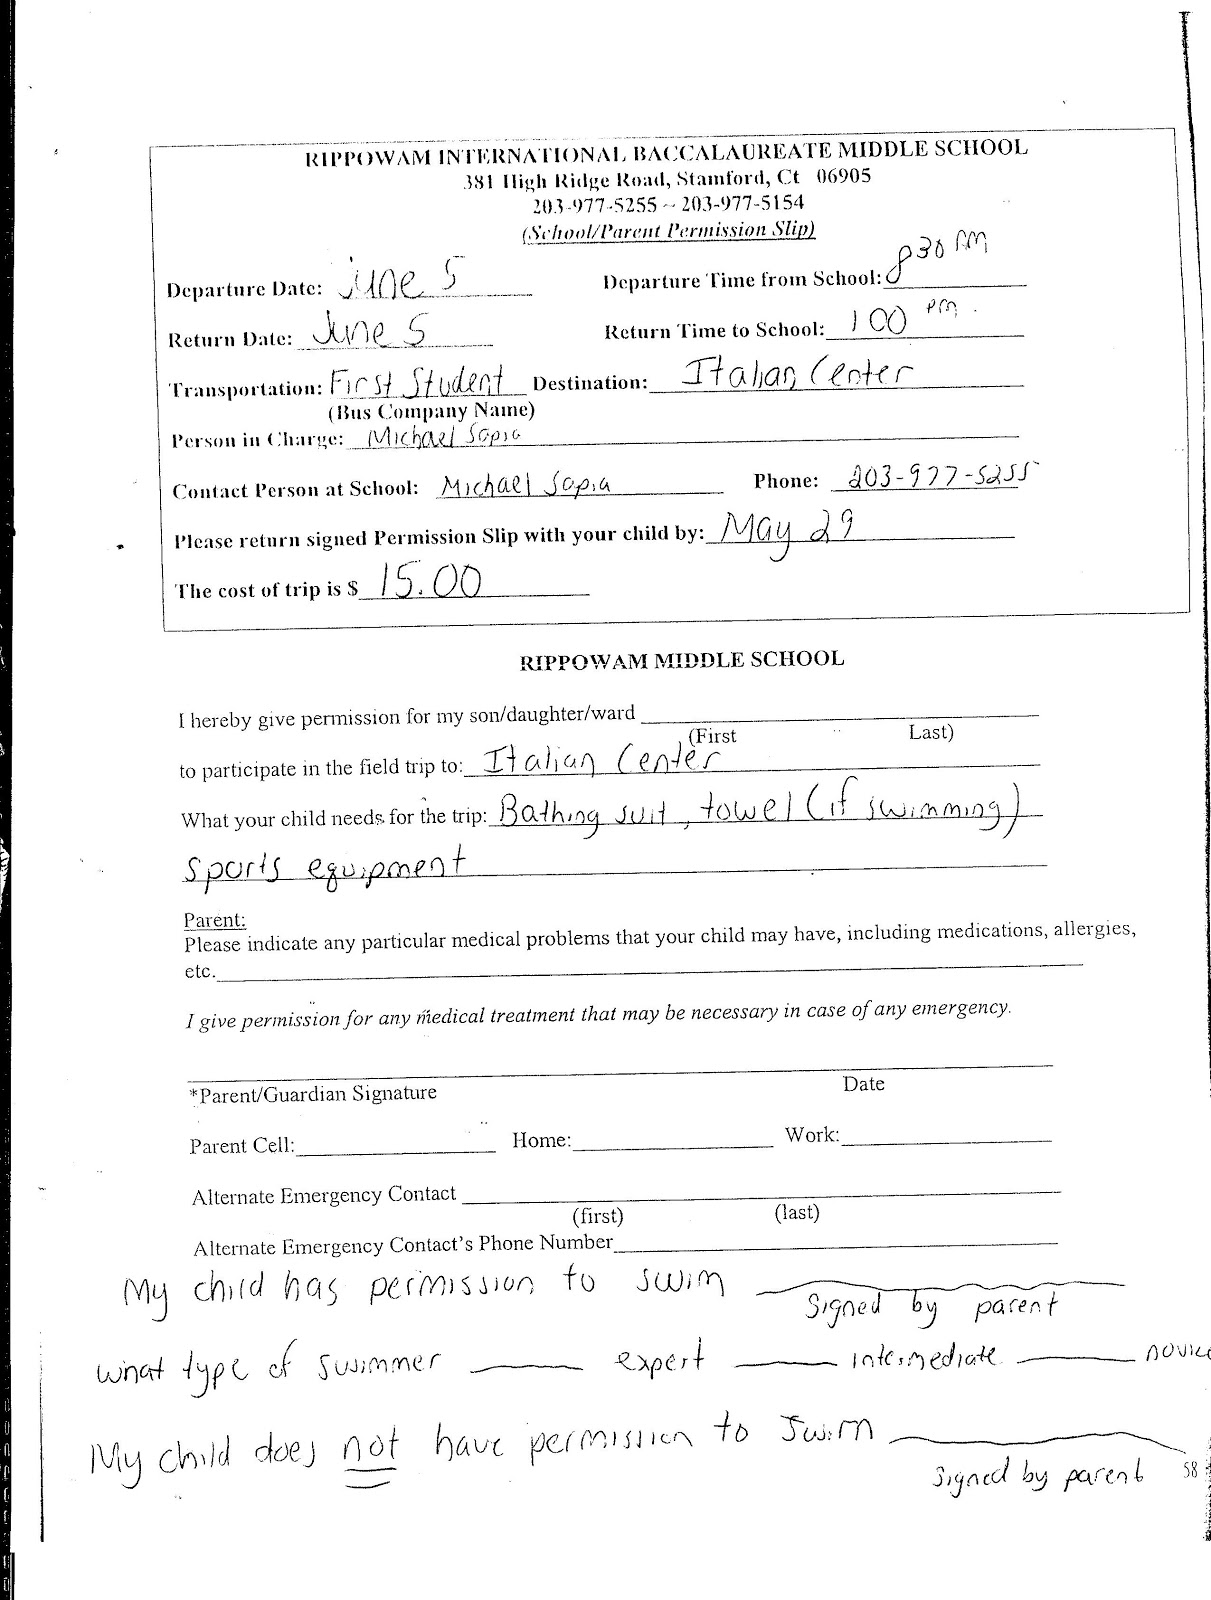 RIPPOWAM INTERNATIONAL BACCALAUREATE MIDDLE SCHOOL
381 High Ridge Road, Stamford, Ct 06905
203-977-5255 ~ 203-977-5154
(School/Parent Permission Slip)
Departure Date: June 5 Departure Time from School: 830 AM
Return Date: June 5 Return Time to School: 100 PM
Transportation: First Student Destination: Italian Center
(Bus Company Name)
Person in Charge: Michael Sapia
Contact Person at School: Michael Sapia Phone: 203-977-5255
Please return signed Permission Slip with your child by: May 29
The cost of trip is $ 15.00
RIPPOWAM MIDDLE SCHOOL
I hereby give permission for my son/daughter/ward
(First Last)
to participate in the field trip to: Italian Center
What your child needs for the trip: Bathing suit, towel (if swimming)
sports equipment
Parent:
Please indicate any particular medical problems that your child may have, including medications, allergies,
etc.
I give permission for any medical treatment that may be necessary in case of any emergency.
*Parent/Guardian Signature Date
Parent Cell: Home: Work:
Alternate Emergency Contact
(first) (last)
Alternate Emergency Contact's Phone Number
My child has permission to swim
Signed by parent
what type of swimmer expert intermediate novice
My child does not have permission to swim
signed by parent 58